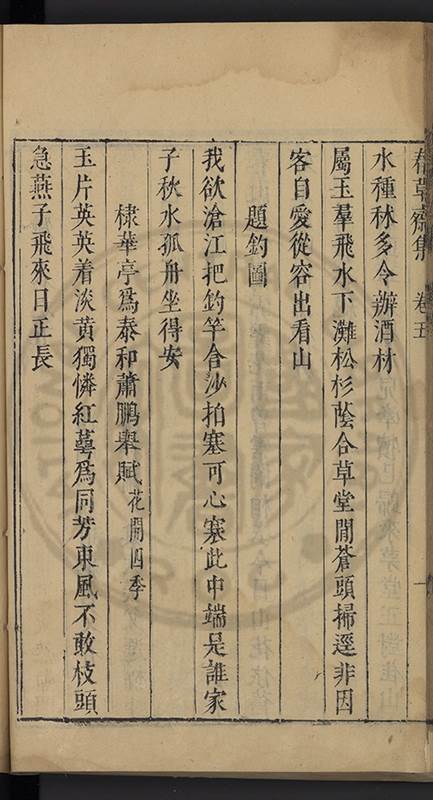 春草齋集 卷五
水種秫多令辦酒材
屬玉羣飛水下灘松杉蔭合草堂閒蒼頭掃逕非因
客自愛從容出看山
題釣圖
我欲滄江把釣竿含沙拍塞可心寒此中端是誰家
子秋水孤舟坐得安
棣華亭爲泰和蕭鵬舉賦花開四季
玉片英英着淡黃獨憐紅萼爲同芳東風不敢枝頭
急燕子飛來日正長